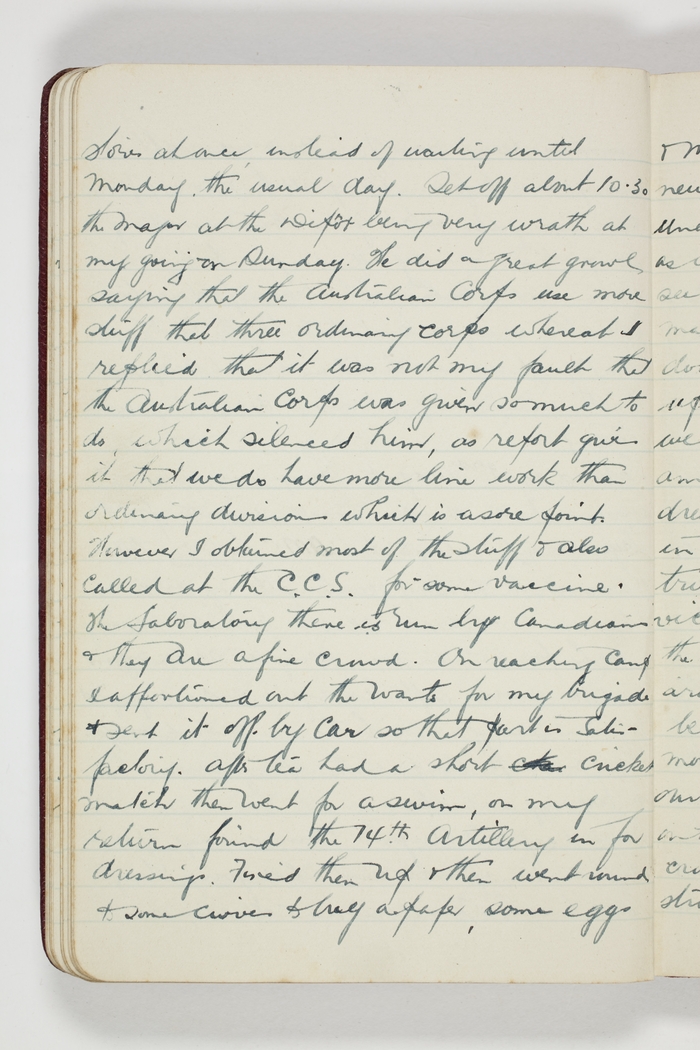 stores at once, instead of waiting until
Monday, the usual day. Set off about 10.30
the Major at the being very wrath at
my going on Sunday. He did a great growl
saying that the Australian Corps use more
stuff that three ordinary corps whereat I
replied that it was not my fault that
the Australian Corps was given so much to
do, which silenced him, as report gives
it that we do have more line work than
ordinary divisions which is a sore point.
However I obtained most of the stuff & also
called at the C.C.S. for some vaccine.
The Laboratory there is run by Canadians
& they are a fine crowd. On reaching Camp
I apportioned out the wants for my brigade
& sent it off by Car so that part is Satis-
factory. After tea had a short cricket
match then went for a swim, on my
return found the 14th Artillery in for
dressings. Fixed them up & then went round
to some to buy a paper, some eggs